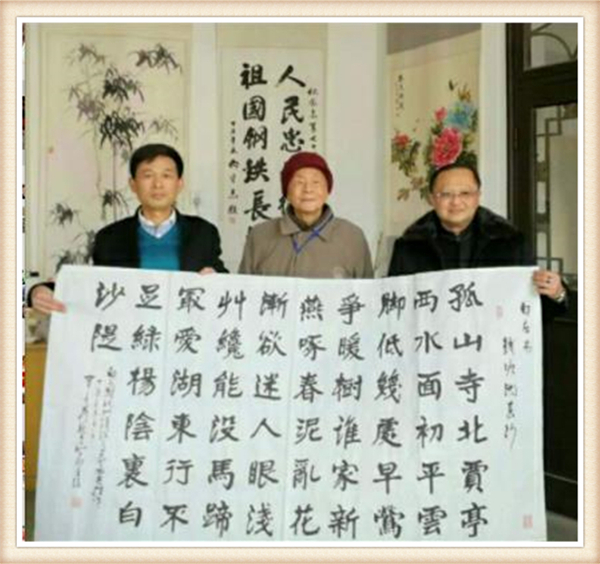 人民忠
祖國鋼鉄長
白居易
錢塘湖春行
孤山寺北賈亭
西水面初平雲
脚低幾處早鶯
爭暖樹誰家新
燕啄春泥亂花
漸欲迷人眼淺
艸纔能没馬蹄
冣愛湖東行不
足綠楊陰裏白
沙隄